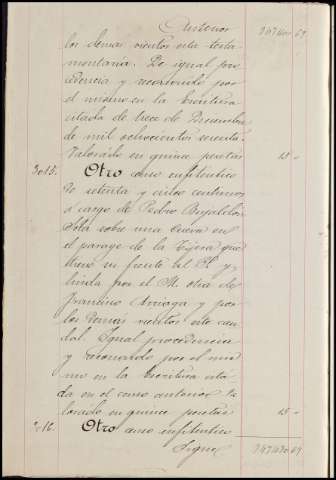 Anterior
los demas vientos esta testa-
mentaria. De igual pro-
cedencia y reconocido por
el mismo en la Escritura
citada de trece de Diciembre
de mil ochocientos
Valorado en quince pesetas 15 "
3º 15. Otro censo enfitéutico
de setenta y cinco centimos
a cargo de Pedro
Solá sobre una Cueva en
el parage de la que
tiene su frente al P. y
linda por el M. otra de
Francisco Arriaga y por
los demás vientos este cau-
dal. Igual procedencia
y reconocido por el mis-
mo en la Escritura cita-
da en el censo anterior Va-
lorado en quince pesetas 15 "
3º 16. Otro censo enfitéutico
Sigue